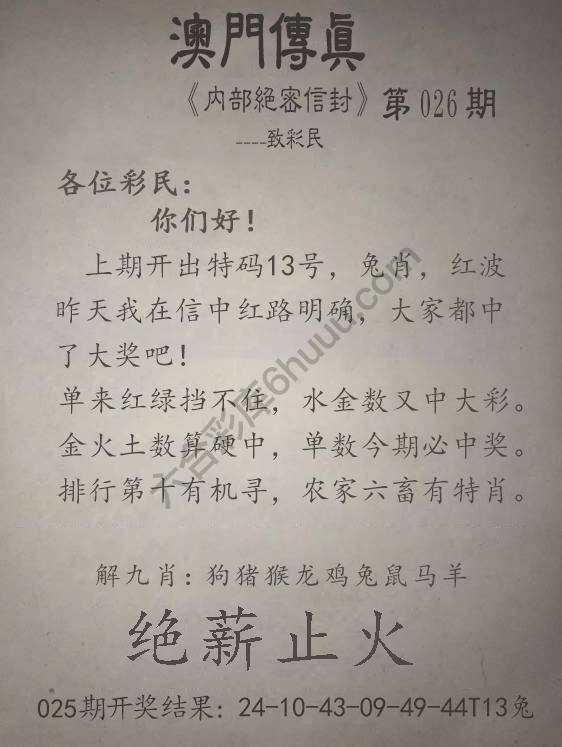 澳門傳眞
《内部絕密信封》第026期
----致彩民
各位彩民：
你们好！
上期开出特码13号，兔肖，红波
昨天我在信中红路明确，大家都中
了大奖吧！
单来红绿挡不住，水金数又中大彩。
金火土数算硬中，单数今期必中奖。
排行第十有机寻，农家六畜有特肖。
六合彩库6huuu.com
解九肖：狗猪猴龙鸡兔鼠马羊
绝薪止火
025期开奖结果：24-10-43-09-49-44T13兔